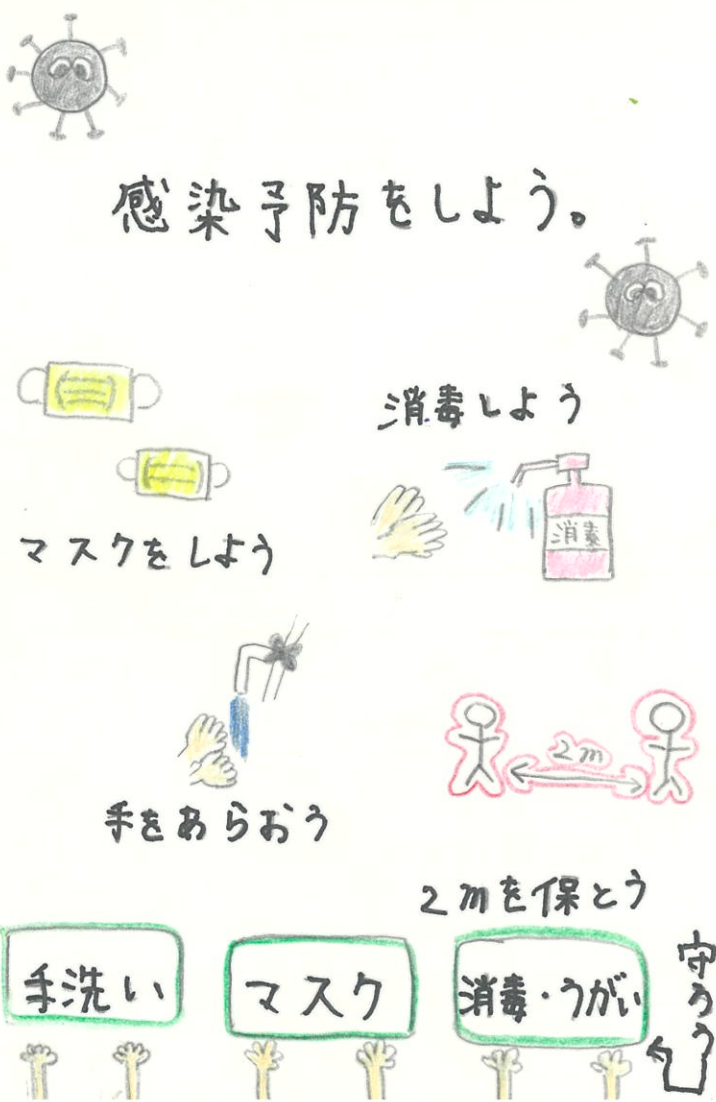 感染予防をしよう。
消毒しよう
消毒
マスクをしよう
2m
手をあらおう
2mを保とう
手洗い
マスク
消毒・うがい
守ろう